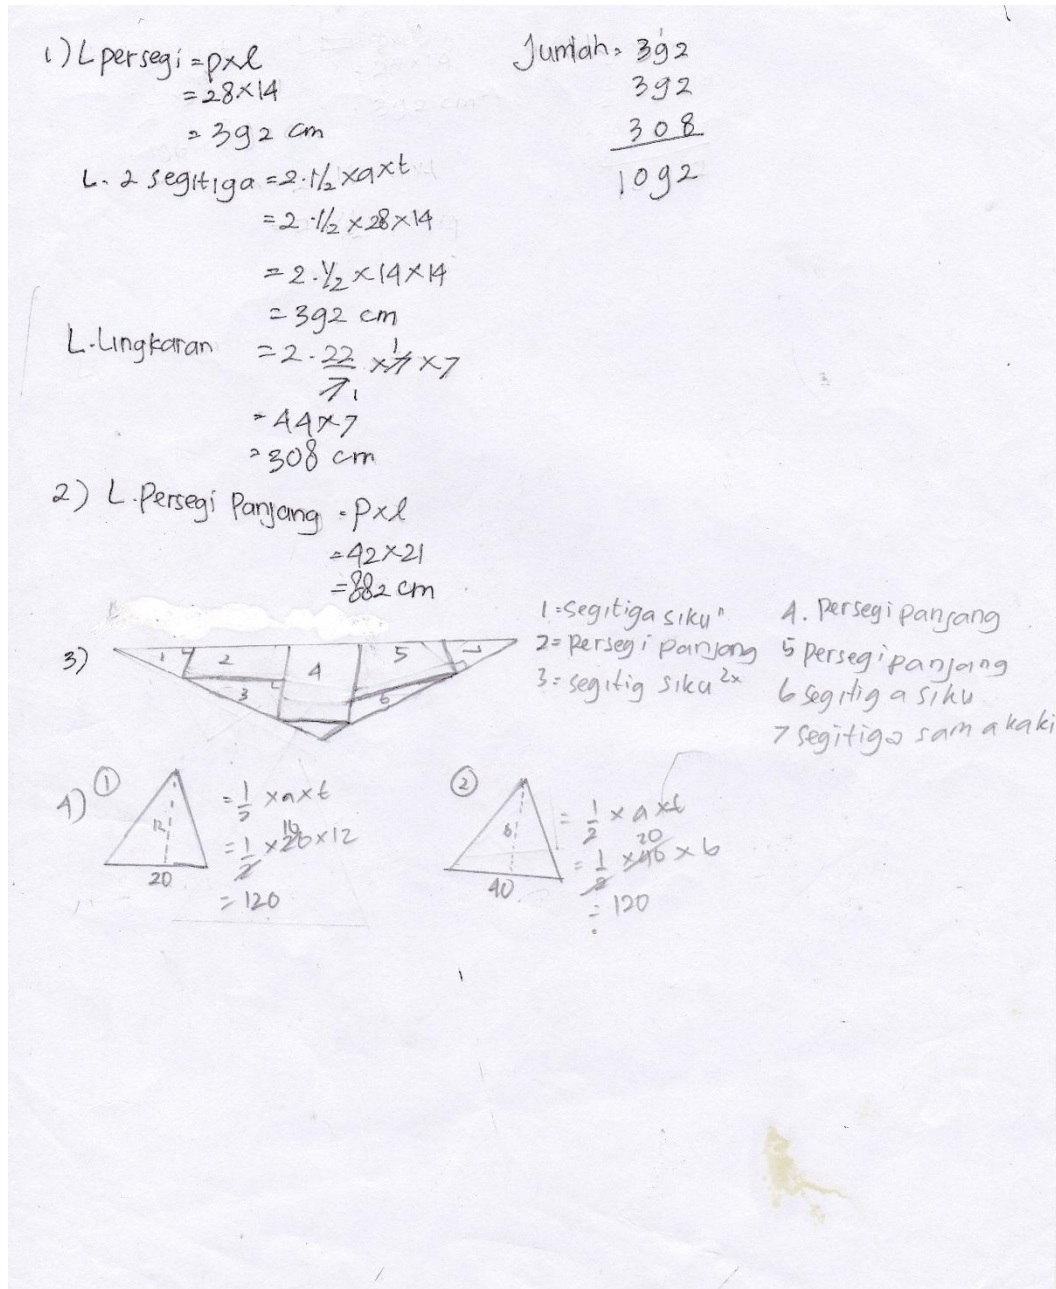 1) L persegi = pxl
= 28x14
= 392 cm
L. 2 segitiga = 2.1/2 xaxt
= 2.1/2 x 28x14
= 2.1/2 x14x14
= 392 cm
L. Lingkaran = 2. 22/7 x 7 1 x7
= 44x7
= 308 cm
Jumlah = 392
392
308
1092
2) L. Persegi Panjang = Pxl
= 42x21
= 882 cm
3) 1 2 3 4 5 6 7
1 = segitiga siku"
2 = Persegi panjang
3 = segitig siku 2x
4. Persegi panjang
5 persegi panjang
6 segitig a siku
7 segitiga sama kaki
4) ① 12 20
= 1/2 xaxt
= 1/2 x 20 10 x12
= 120
② 6 40
= 1/2 x a xt
= 1/2 x 40 20 x 6
= 120